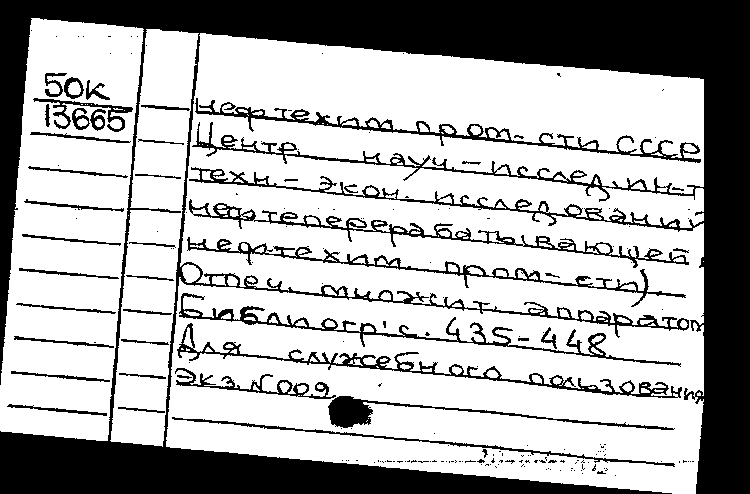 50к
13665
нефтехим. пром-сти СССР
Центр. науч.-исслед. ин-т
техн.-экон. исследований
нефтеперерабатывающей
нефтехим. пром-сти).
Отпеч. множит. аппаратом
Библиогр: с. 435-448
Для служебного пользования
Экз. №009